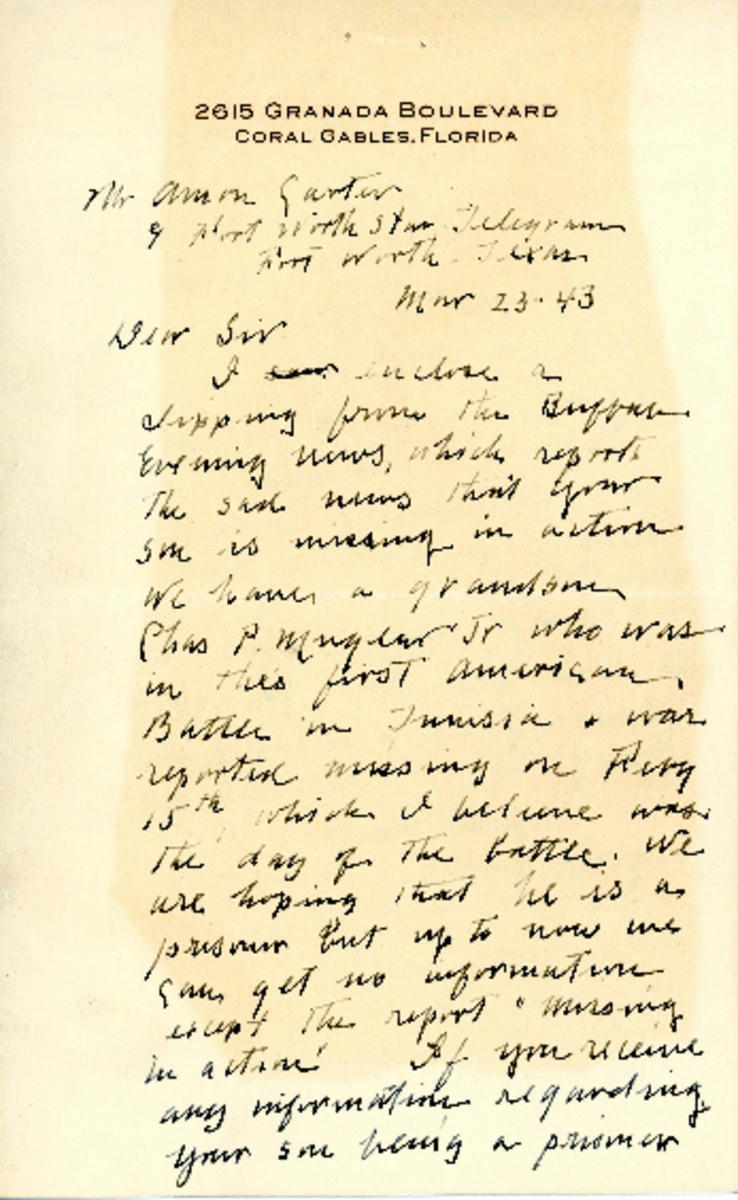 2615 GRANADA BOULEVARD
CORAL GABLES, FLORIDA
Mr Amon Carter
% Fort Worth Star Telegram
Fort Worth Texas
Mar 23-43
Dear Sir
I enclose a
clipping from the Buffalo
Evening news, which reports
the sad news that your
son is missing in action
We have a grandson
Chas P. Jr who was
in this first American
Battle in Tunisia & was
reported missing on Feby
15th, which I believe was
the day of the battle. We
are hoping that he is a
prisoner But up to now we
can get no information
except the report "missing
in action" If you receive
any information regarding
your son being a prisoner